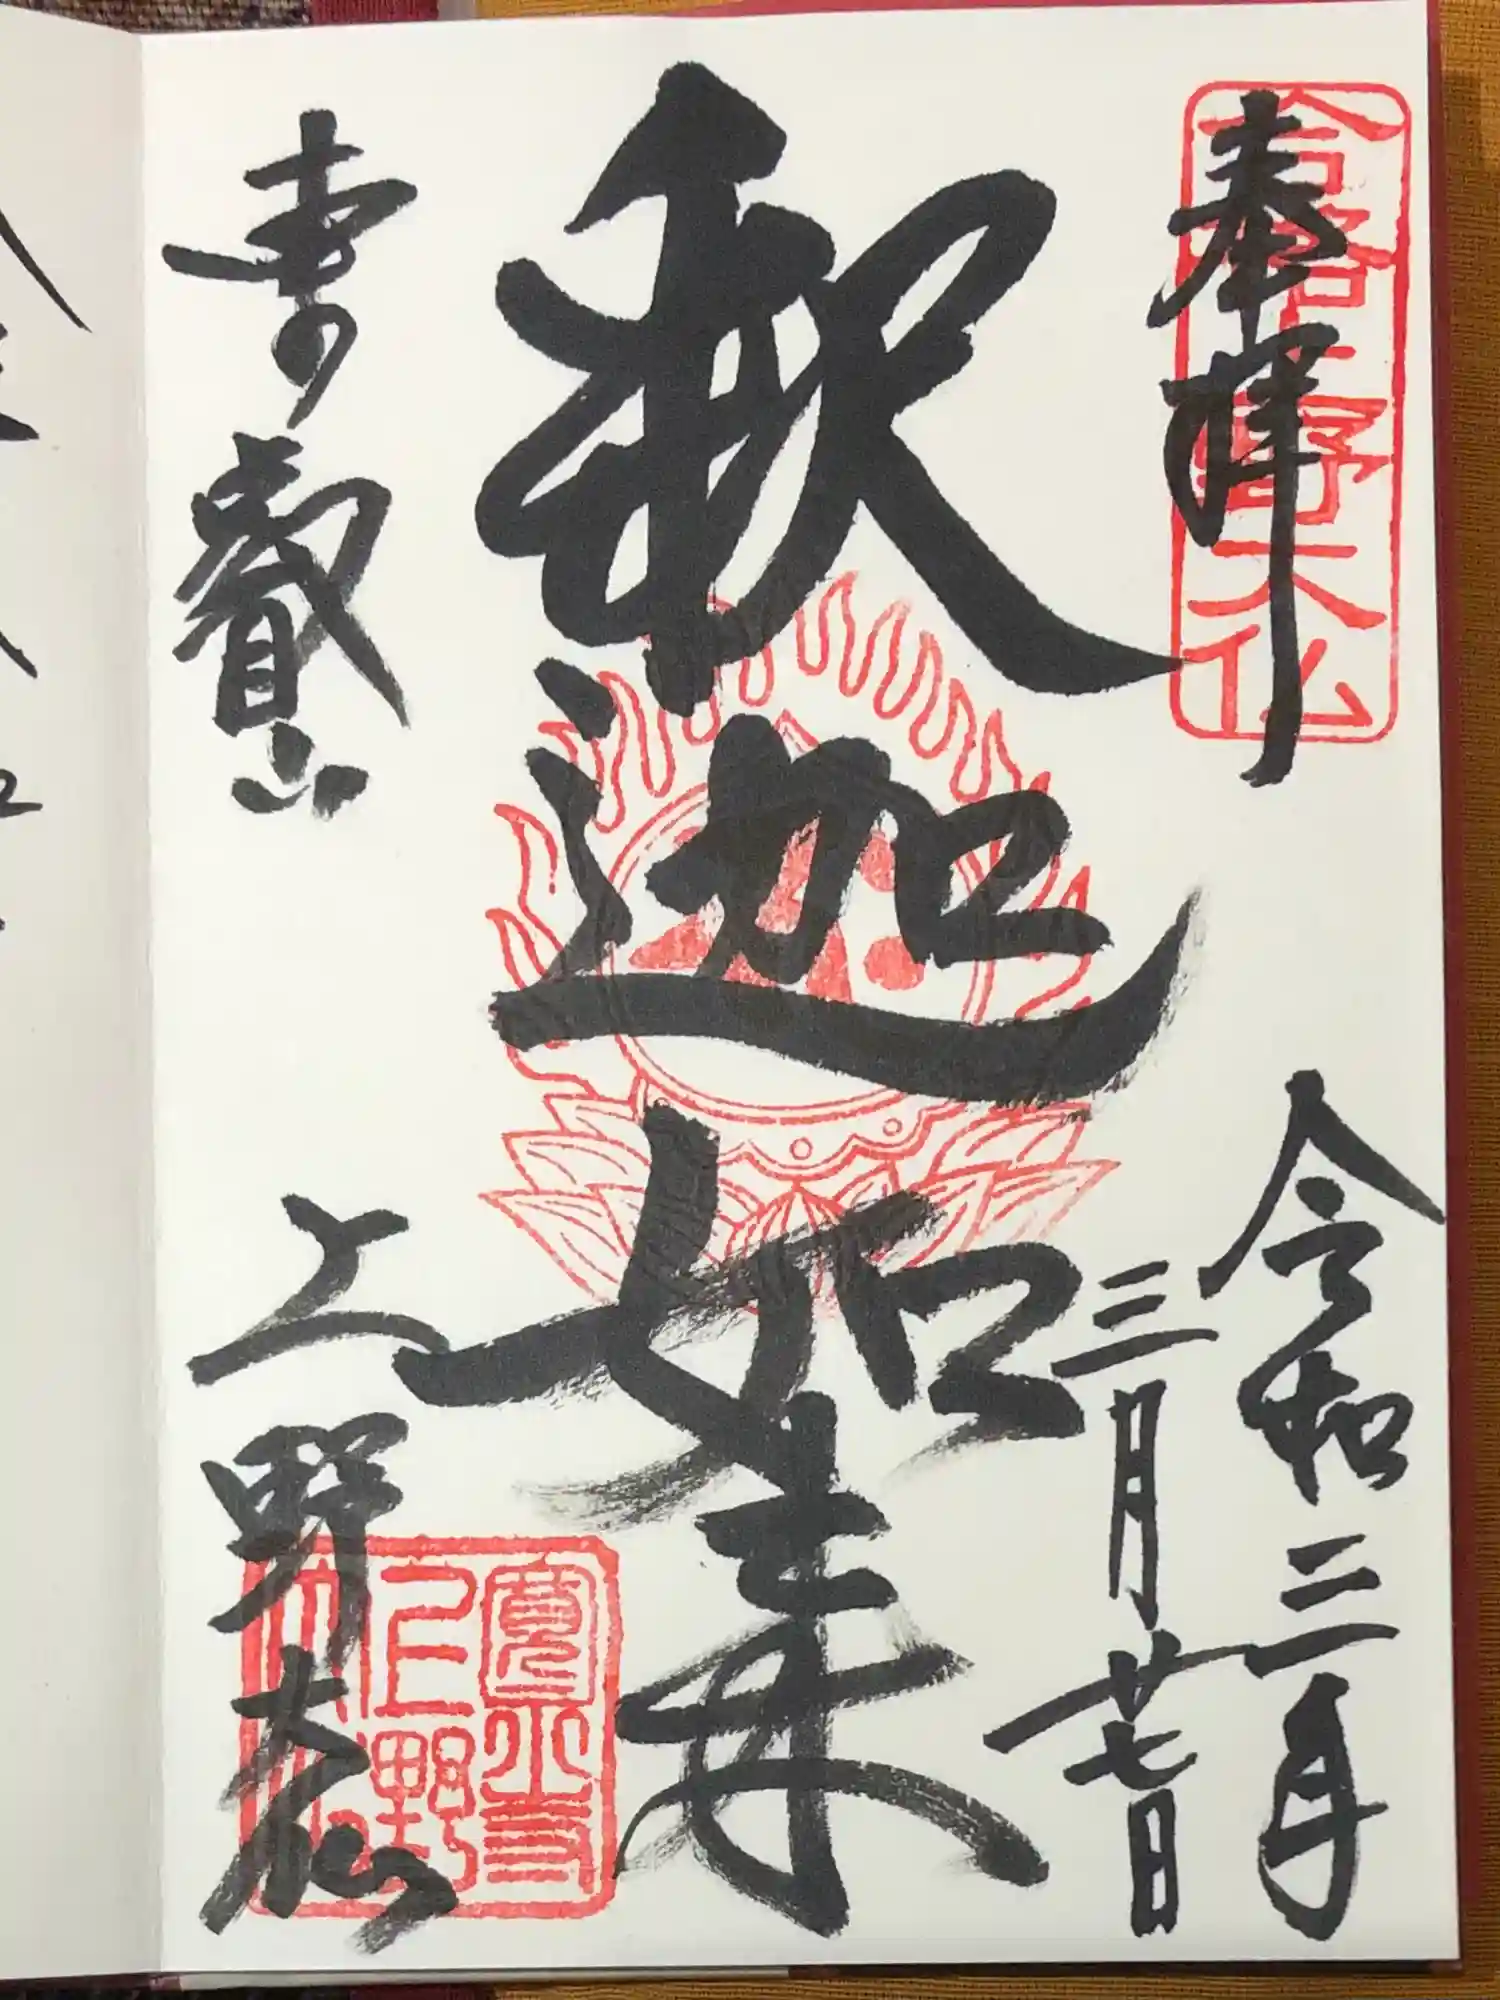 奉拝
合格上野大仏
令和三年
三月廿七日
釈迦如来
東叡山
上野大仏
寛永寺
上野
大仏